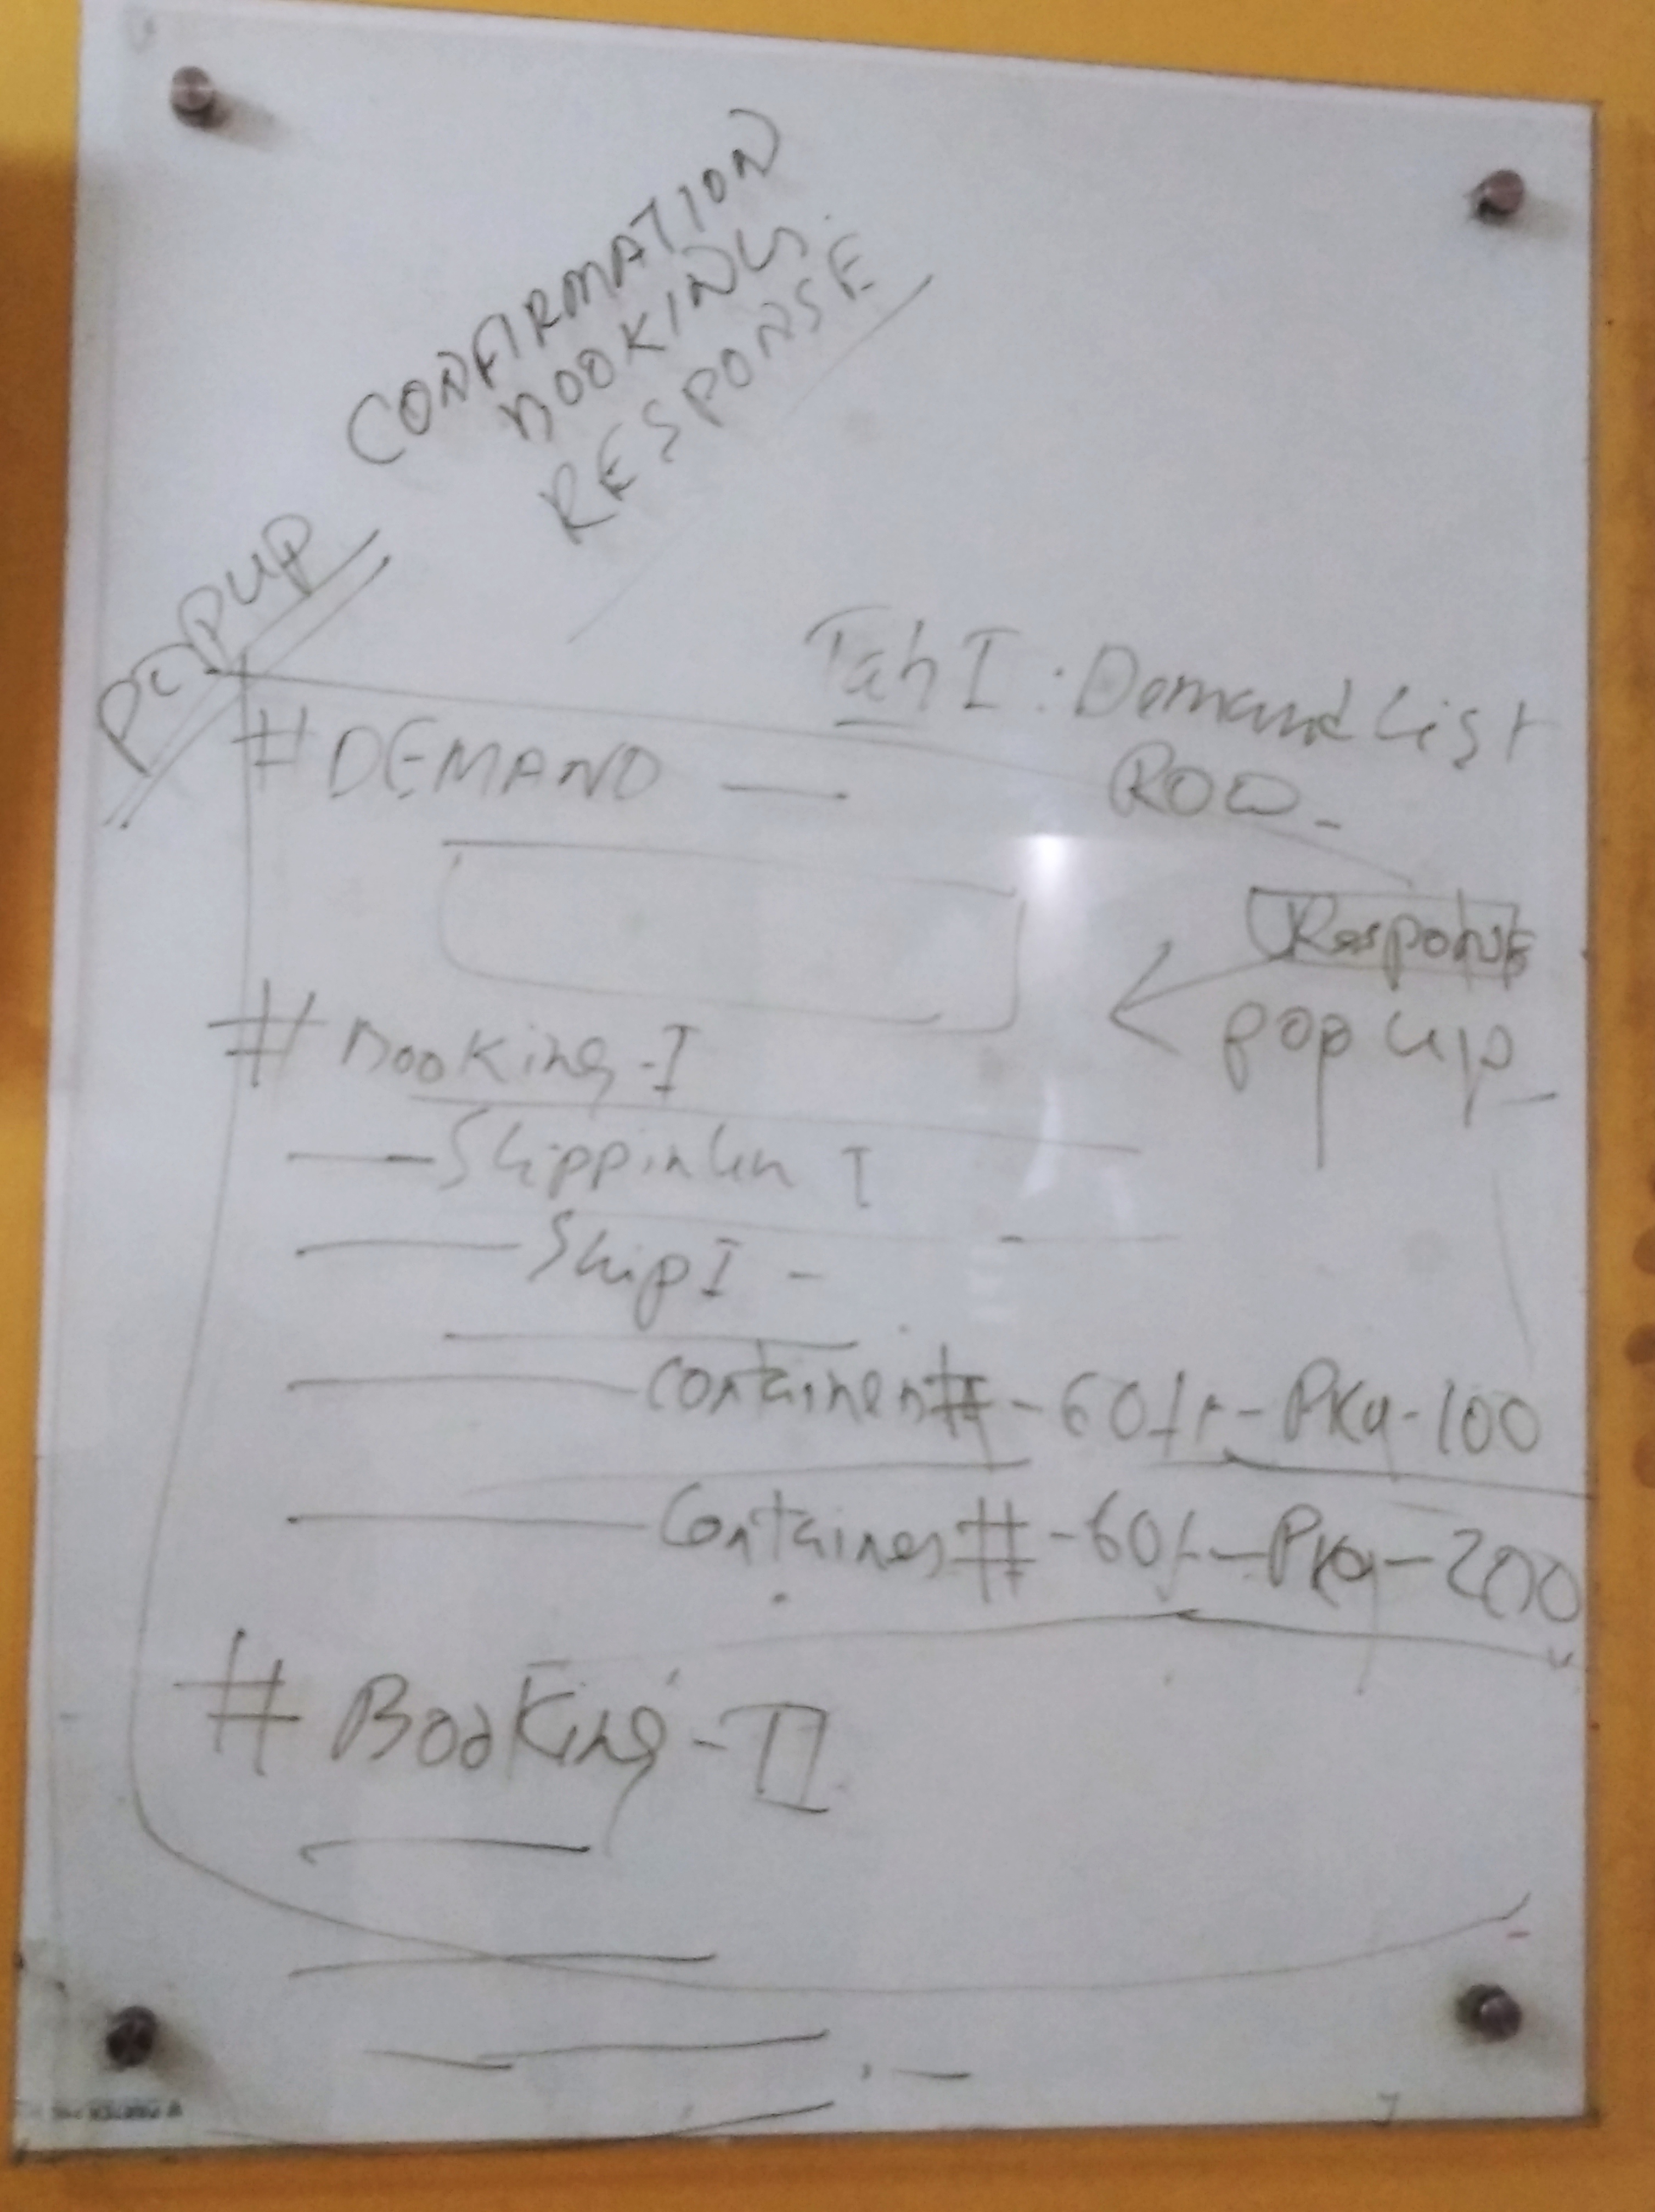 CONFIRMATION
BOOKING
RESPONSE
POPUP
Tab I : Demand List
ROW -
# DEMAND —
Response
pop up
# Booking - I
Ship I -
Container # - 60ft - PKg - 100
Container # - 60f - PKg - 200
# Booking - II